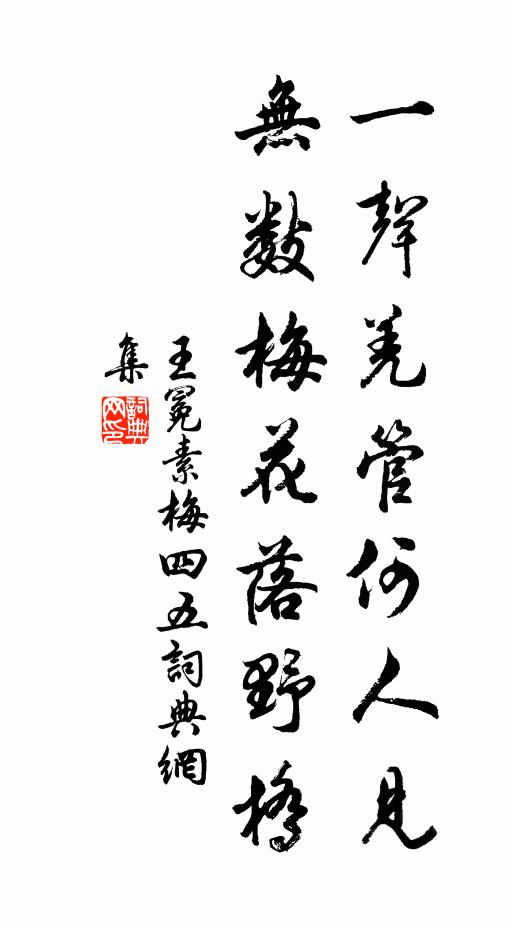 一聲羌管何人見
無數梅花落野橋
王冕素梅四五詞典網
集
詞典
网印